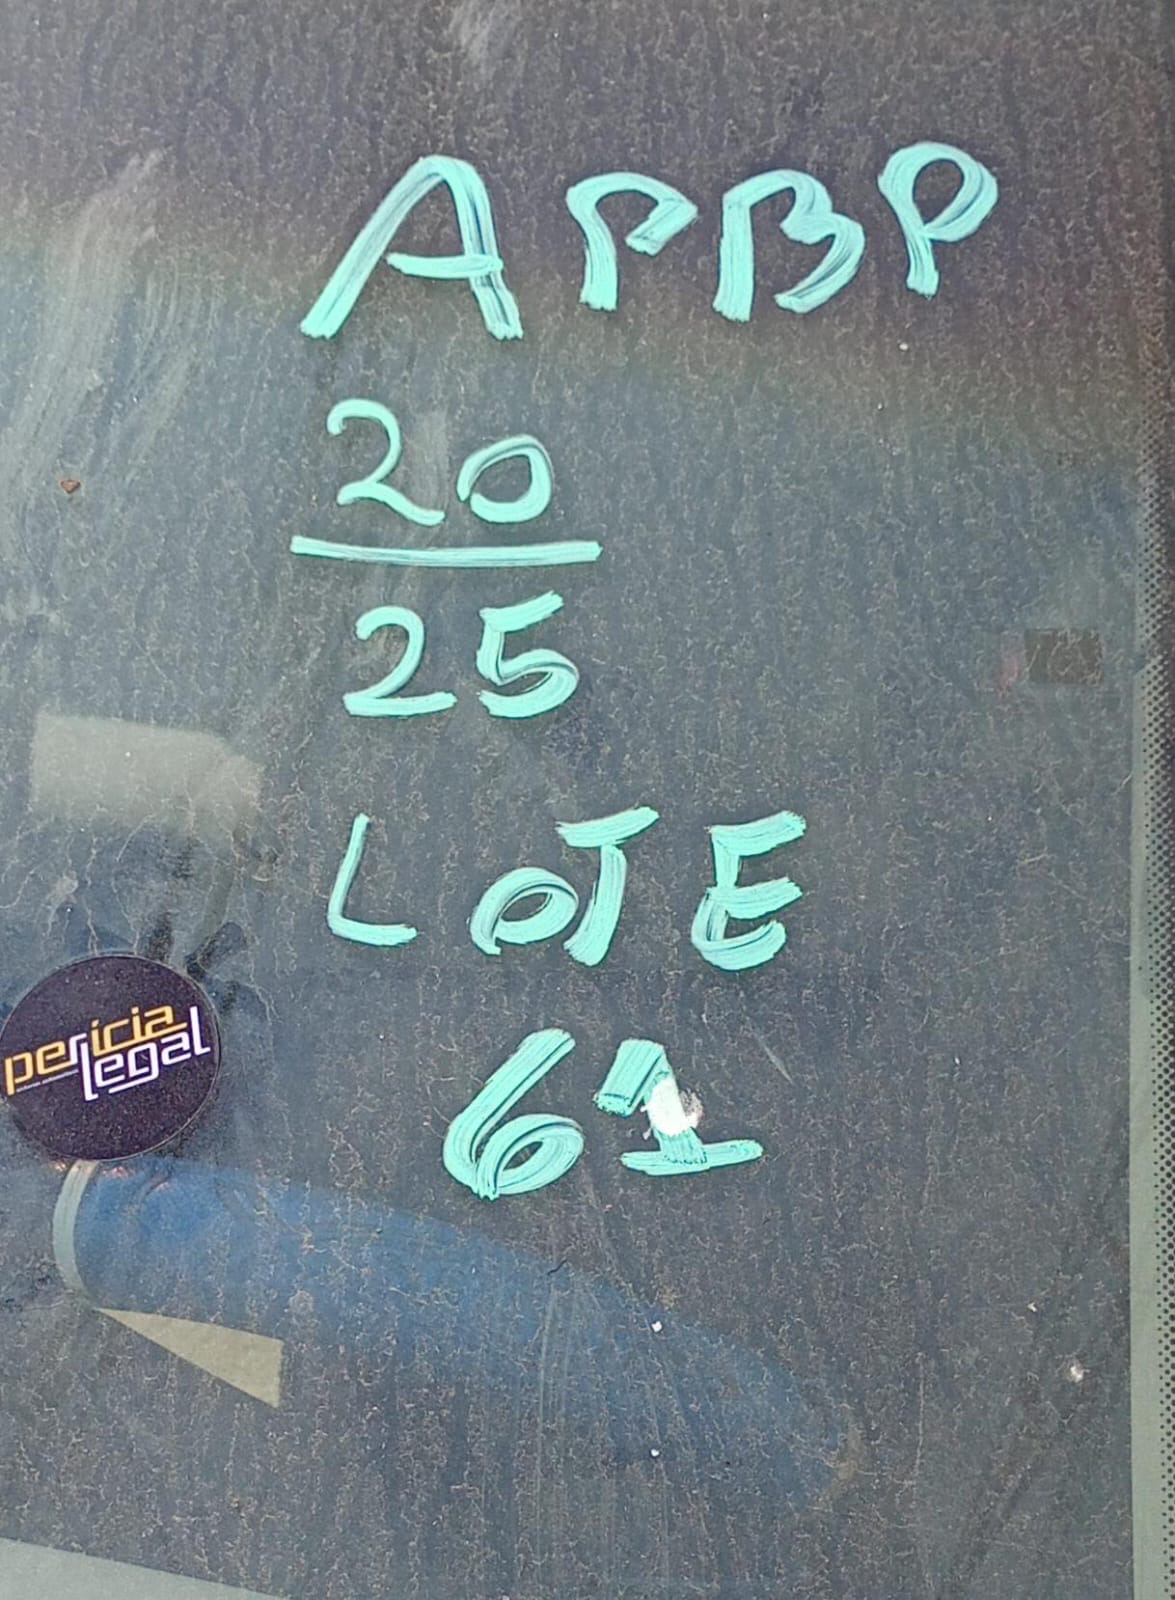 APBP
20
25
LOTE
61
pericia
legal